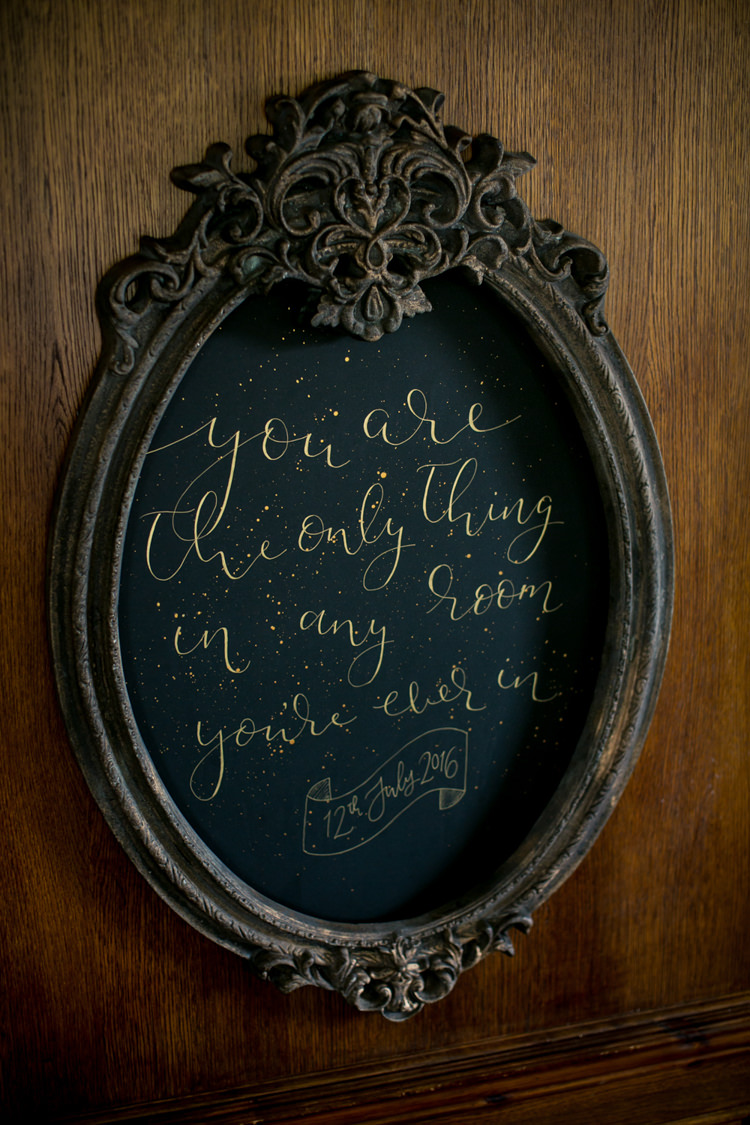 you are
the only thing
in any room
you're ever in
12th July 2016